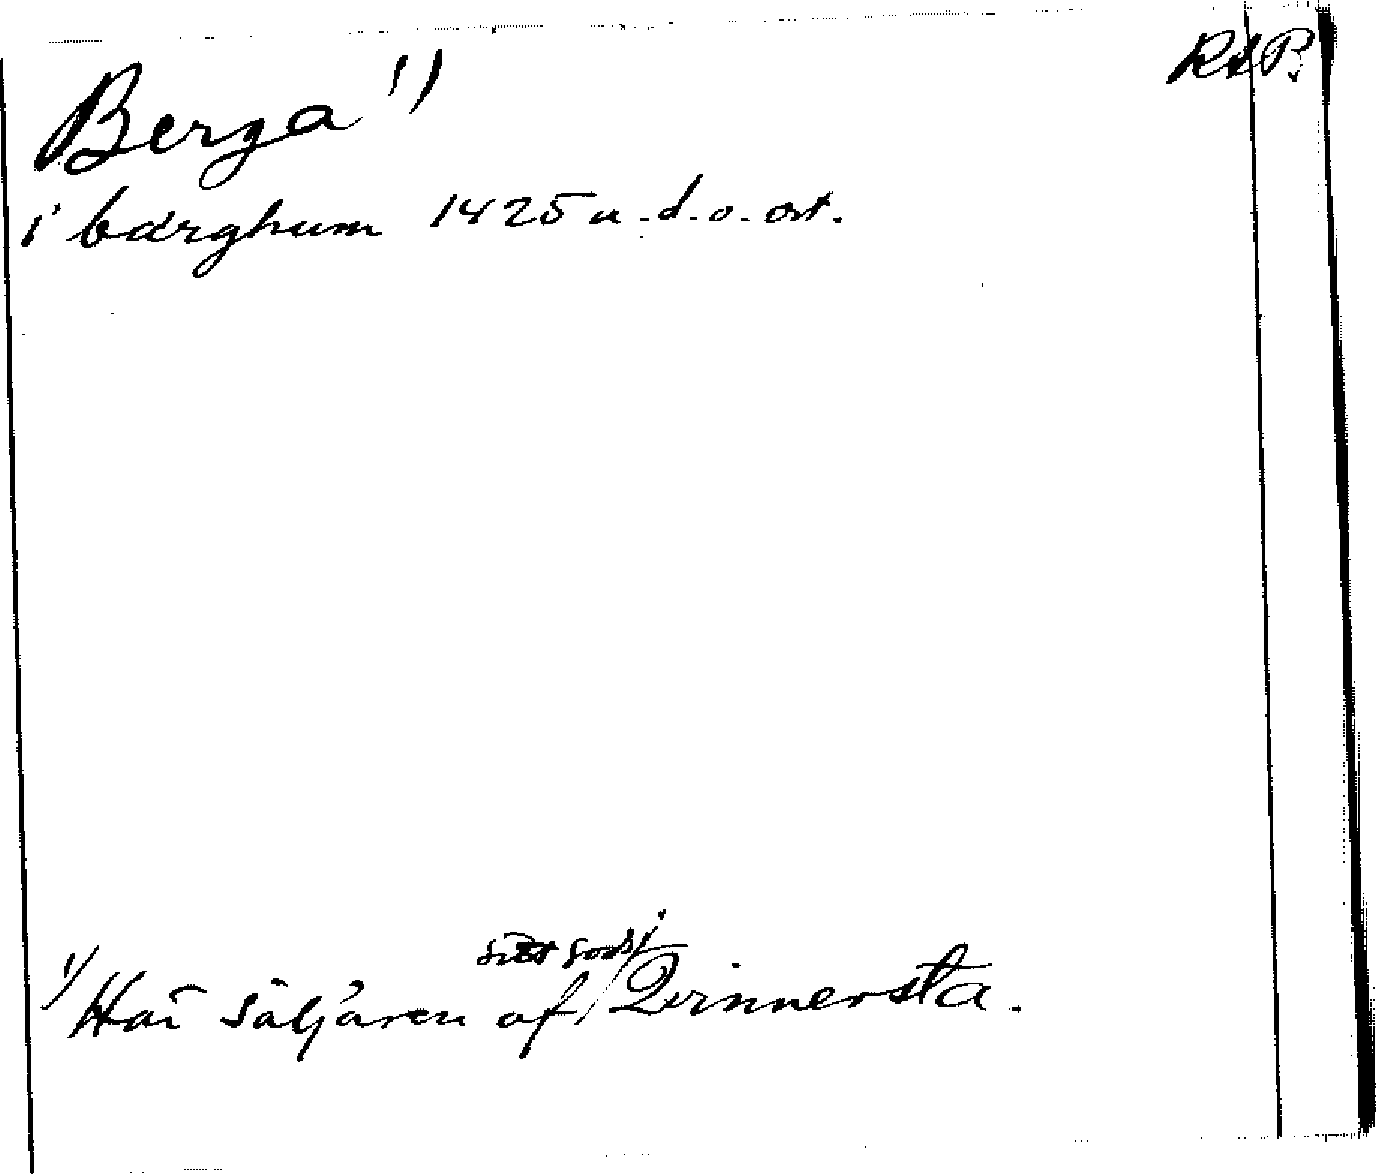 Berga 1)
RAP.
i bærghum 1425 u.d.o. ort.
1) Här säljaren af sitt gods i Qvinnersta.